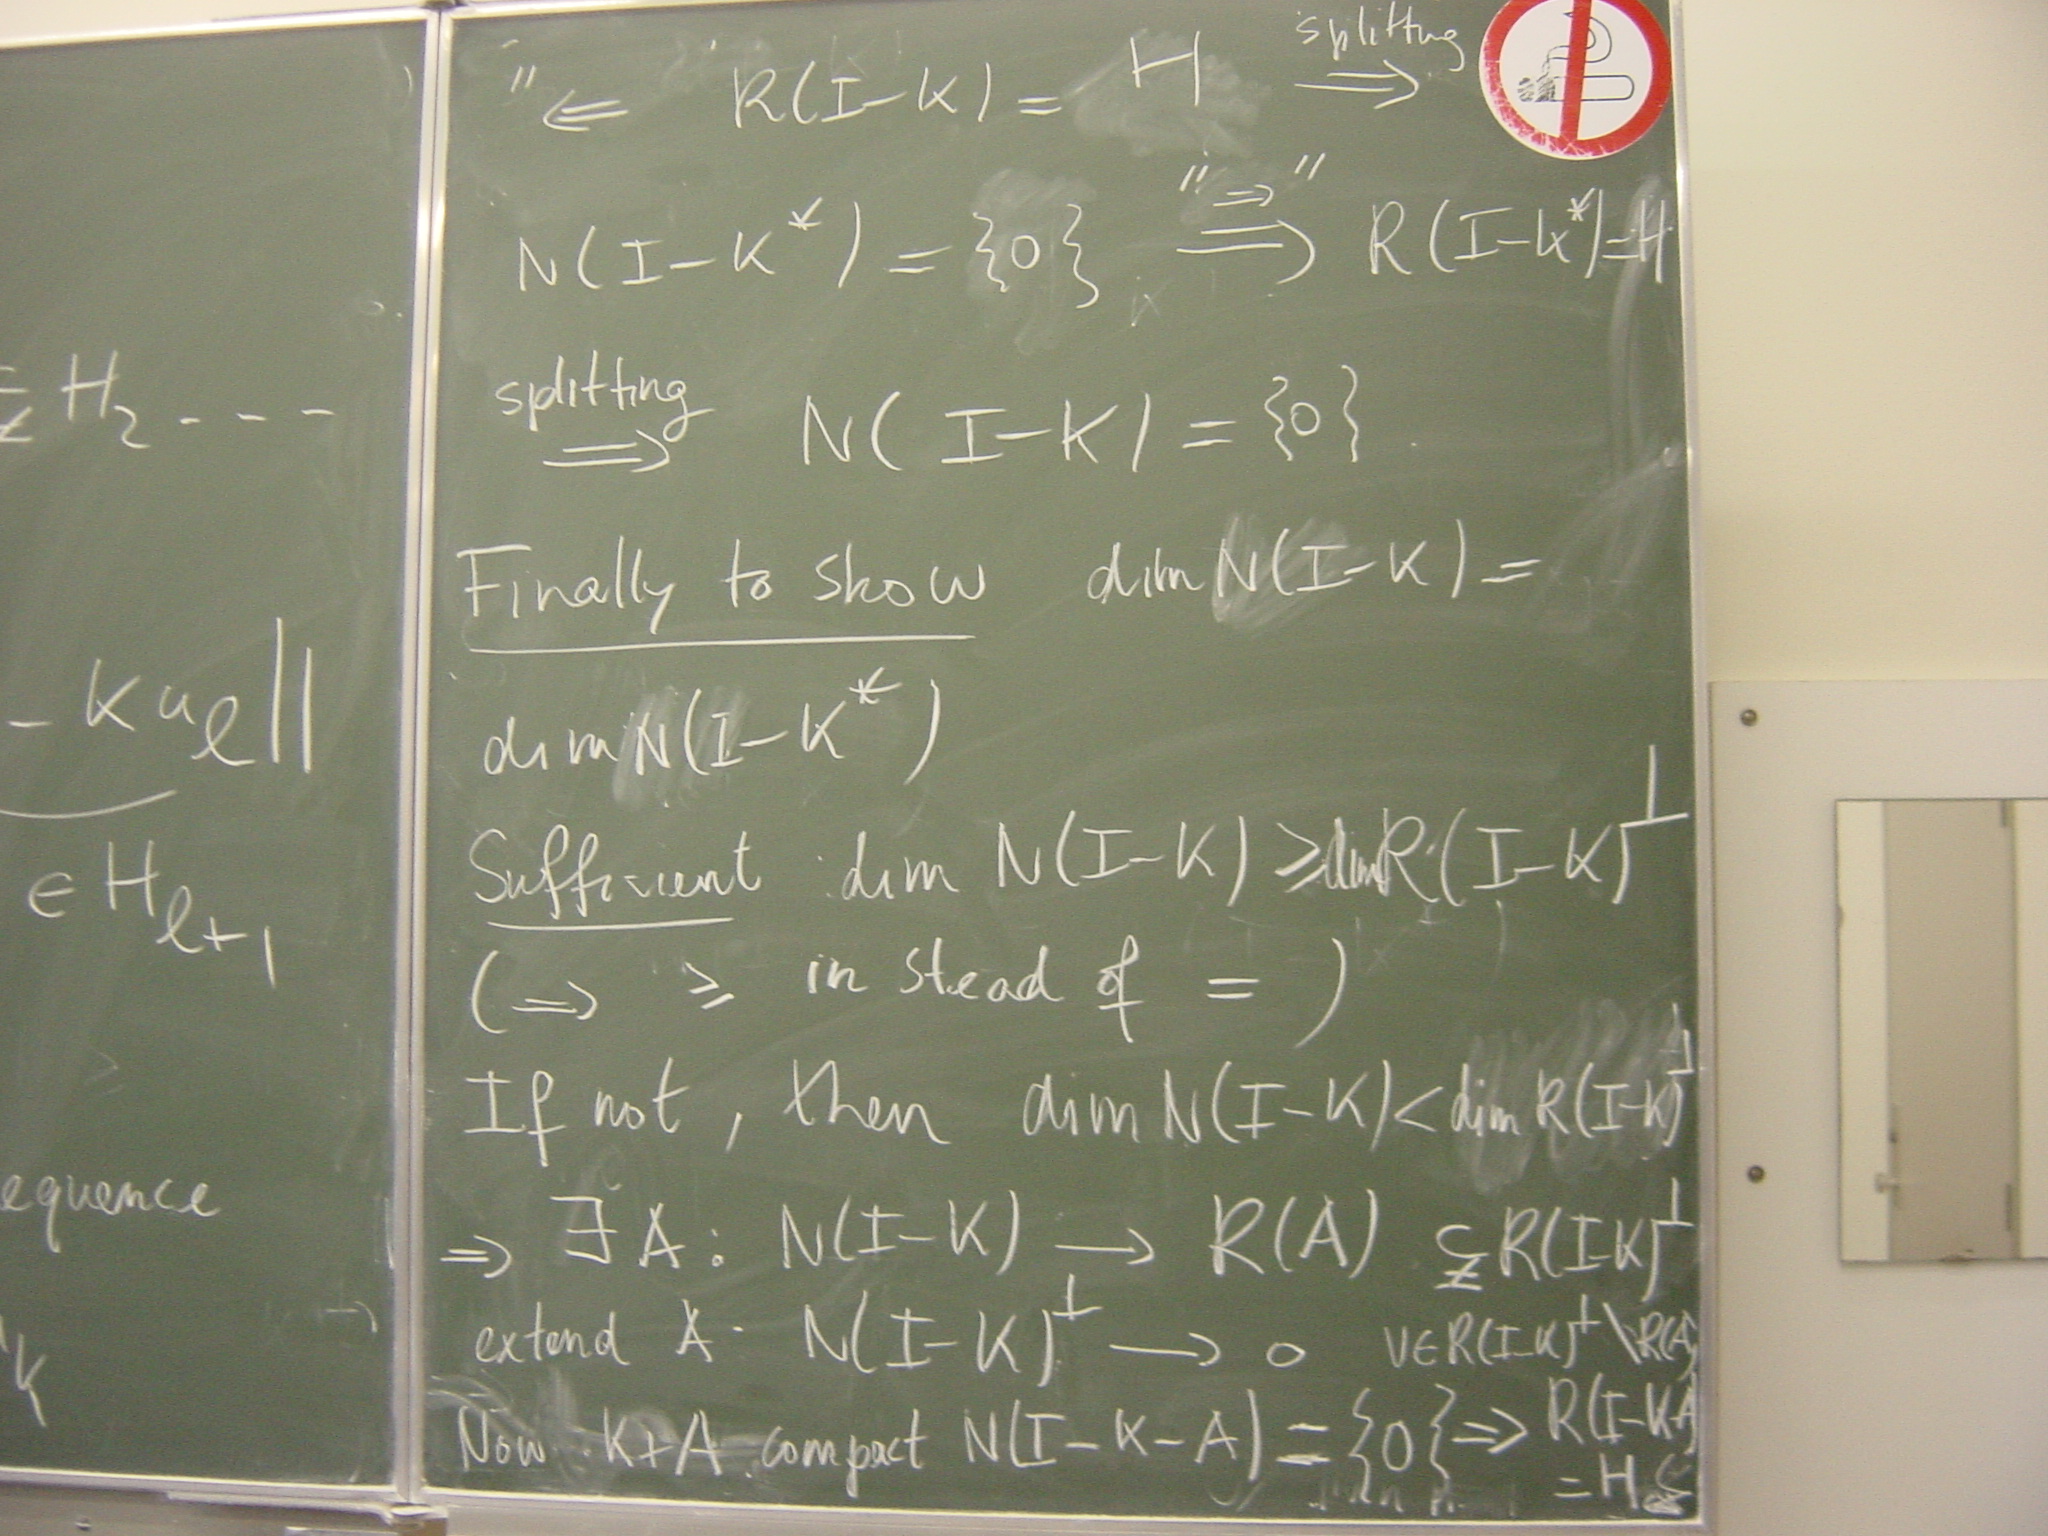 ≨ H₂ - - -
- K u_ℓ||
∈ H_{ℓ+1}
equence
K
"⇐ " R(I-K) = H splitting ⟹
N(I-K*) = {0} "⇒" ⟹ R(I-K*)=H
splitting ⟹ N(I-K) = {0}
Finally to show dim N(I-K) =
dim N(I-K*)
Sufficient : dim N(I-K) ≥ dim R(I-K)^⊥
(⇒ ≥ in stead of = )
If not, then dim N(I-K) < dim R(I-K)^⊥
⇒ ∃ A : N(I-K) → R(A) ⊊ R(I-K)^⊥
extend A : N(I-K)^⊥ → 0 v∈R(I-K)^⊥\R(A)
Now K+A compact N(I-K-A) = {0} ⇒ R(I-K-A)
= H